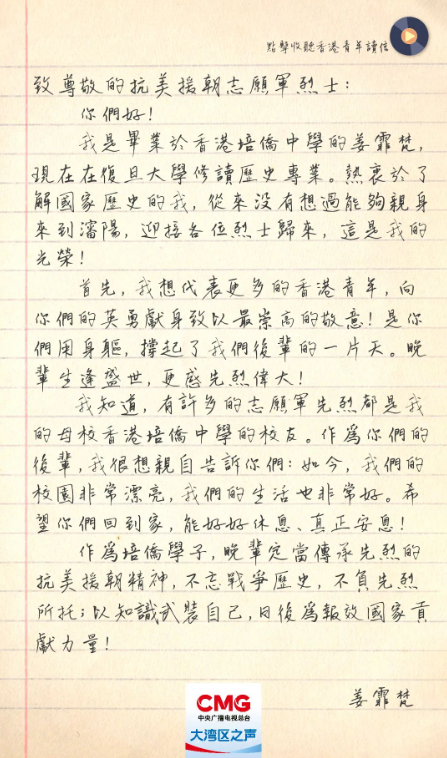 點擊收聽香港青年讀信
致尊敬的抗美援朝志願軍烈士：
你們好！
我是畢業於香港培僑中學的姜霏梵，
現在在復旦大學修讀歷史專業。熱衷於了
解國家歷史的我，從來沒有想過能夠親身
來到瀋陽，迎接各位烈士歸來，這是我的
光榮！
首先，我想代表更多的香港青年，向
你們的英勇獻身致以最崇高的敬意！是你
們用身軀，撐起了我們後輩的一片天。晚
輩生逢盛世，更感先烈偉大！
我知道，有許多的志願軍先烈都是我
的母校香港培僑中學的校友。作為你們的
後輩，我很想親自告訴你們：如今，我們的
校園非常漂亮，我們的生活也非常好。希
望你們回到家，能好好休息、真正安息！
作為培僑學子，晚輩定當傳承先烈的
抗美援朝精神，不忘戰爭歷史，不負先烈
所托；以知識武裝自己，日後為報效國家貢
獻力量！
姜霏梵
CMG
中央广播电视总台
大湾区之声